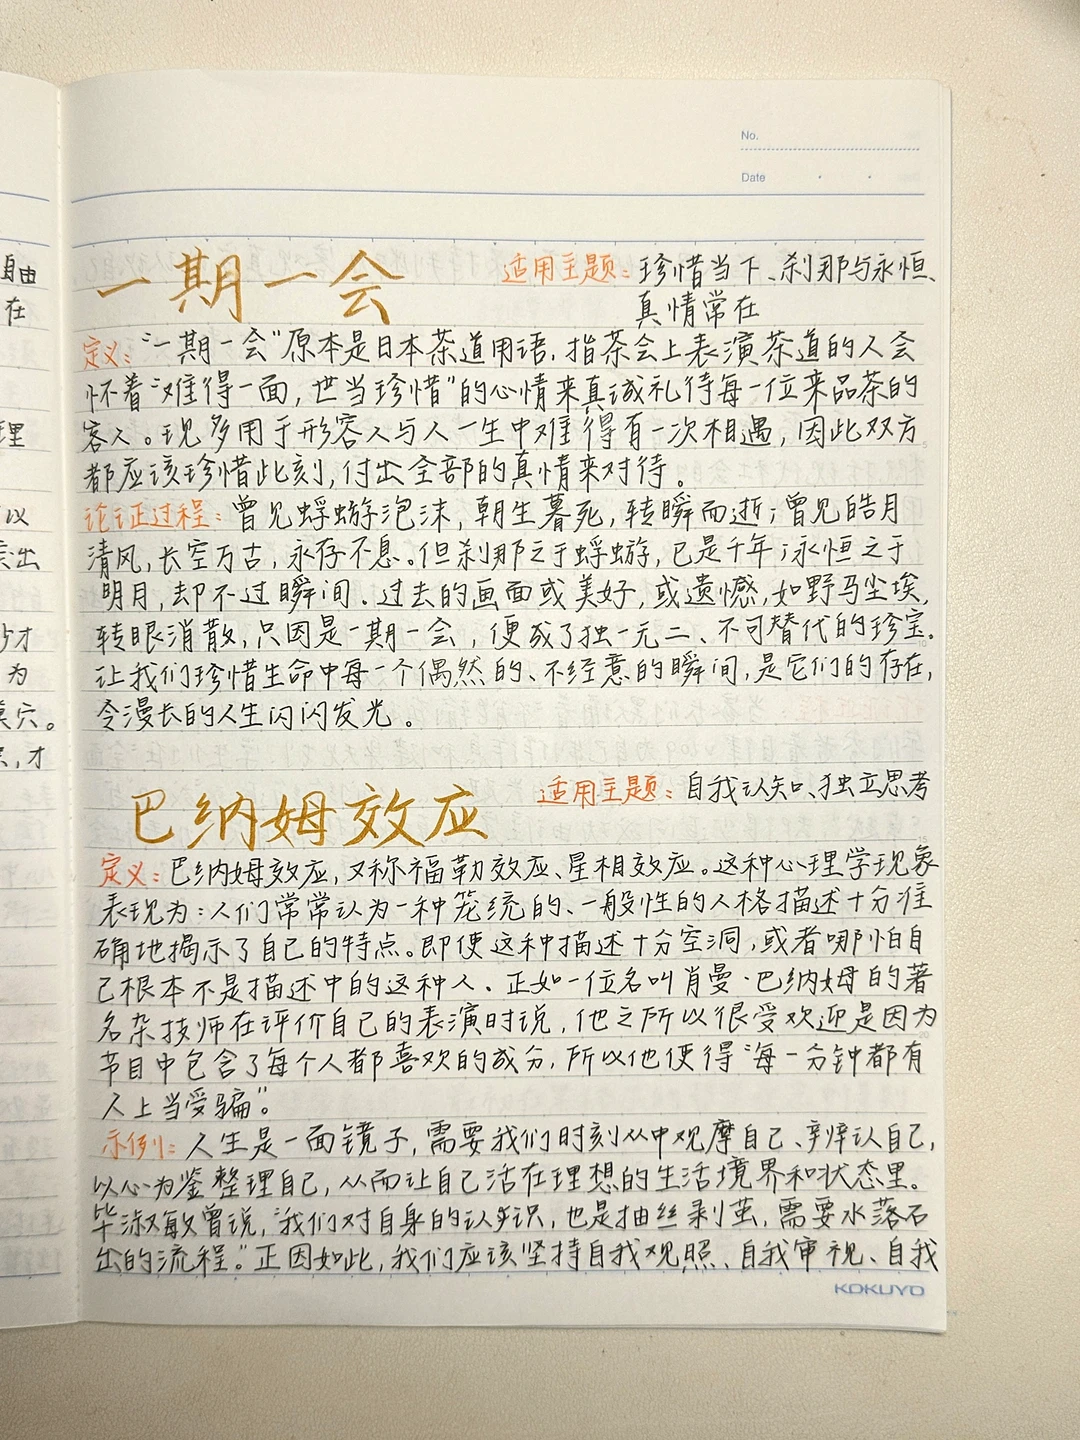 No.
Date
自由
在
理
以
突出
才
为
穴。
,才
一期一会 适用主题:珍惜当下、刹那与永恒、
真情常在
定义:“一期一会”原本是日本茶道用语,指茶会上表演茶道的人会
怀着“难得一面,世当珍惜”的心情来真诚礼待每一位来品茶的
客人。现多用于形容人与人一生中难得有一次相遇,因此双方
都应该珍惜此刻,付出全部的真情来对待。
论证过程:曾见蜉蝣泡沫,朝生暮死,转瞬而逝;曾见皓月
清风,长空万古,永存不息。但刹那之于蜉蝣,已是千年;永恒之于
明月,却不过瞬间、过去的画面或美好,或遗憾,如野马尘埃,
转眼消散,只因是一期一会,便成了独一无二、不可替代的珍宝。
让我们珍惜生命中每一个偶然的、不经意的瞬间,是它们的存在,
令漫长的人生闪闪发光。
巴纳姆效应 适用主题:自我认知、独立思考
定义:巴纳姆效应,又称福勒效应、星相效应。这种心理学现象
表现为:人们常常认为一种笼统的、一般性的人格描述十分准
确地揭示了自己的特点。即使这种描述十分空洞,或者哪怕自
己根本不是描述中的这种人、正如一位名叫肖曼·巴纳姆的著
名杂技师在评价自己的表演时说,他之所以很受欢迎是因为
节目中包含了每个人都喜欢的成分,所以他使得“每一分钟都有
人上当受骗”。
示例:人生是一面镜子,需要我们时刻从中观摩自己、辨认自己,
以心为鉴整理自己,从而让自己活在理想的生活境界和状态里。
毕淑敏曾说,“我们对自身的认识,也是抽丝剥茧,需要水落石
出的流程。”正因如此,我们应该坚持自我观照、自我审视、自我
KOKUYO